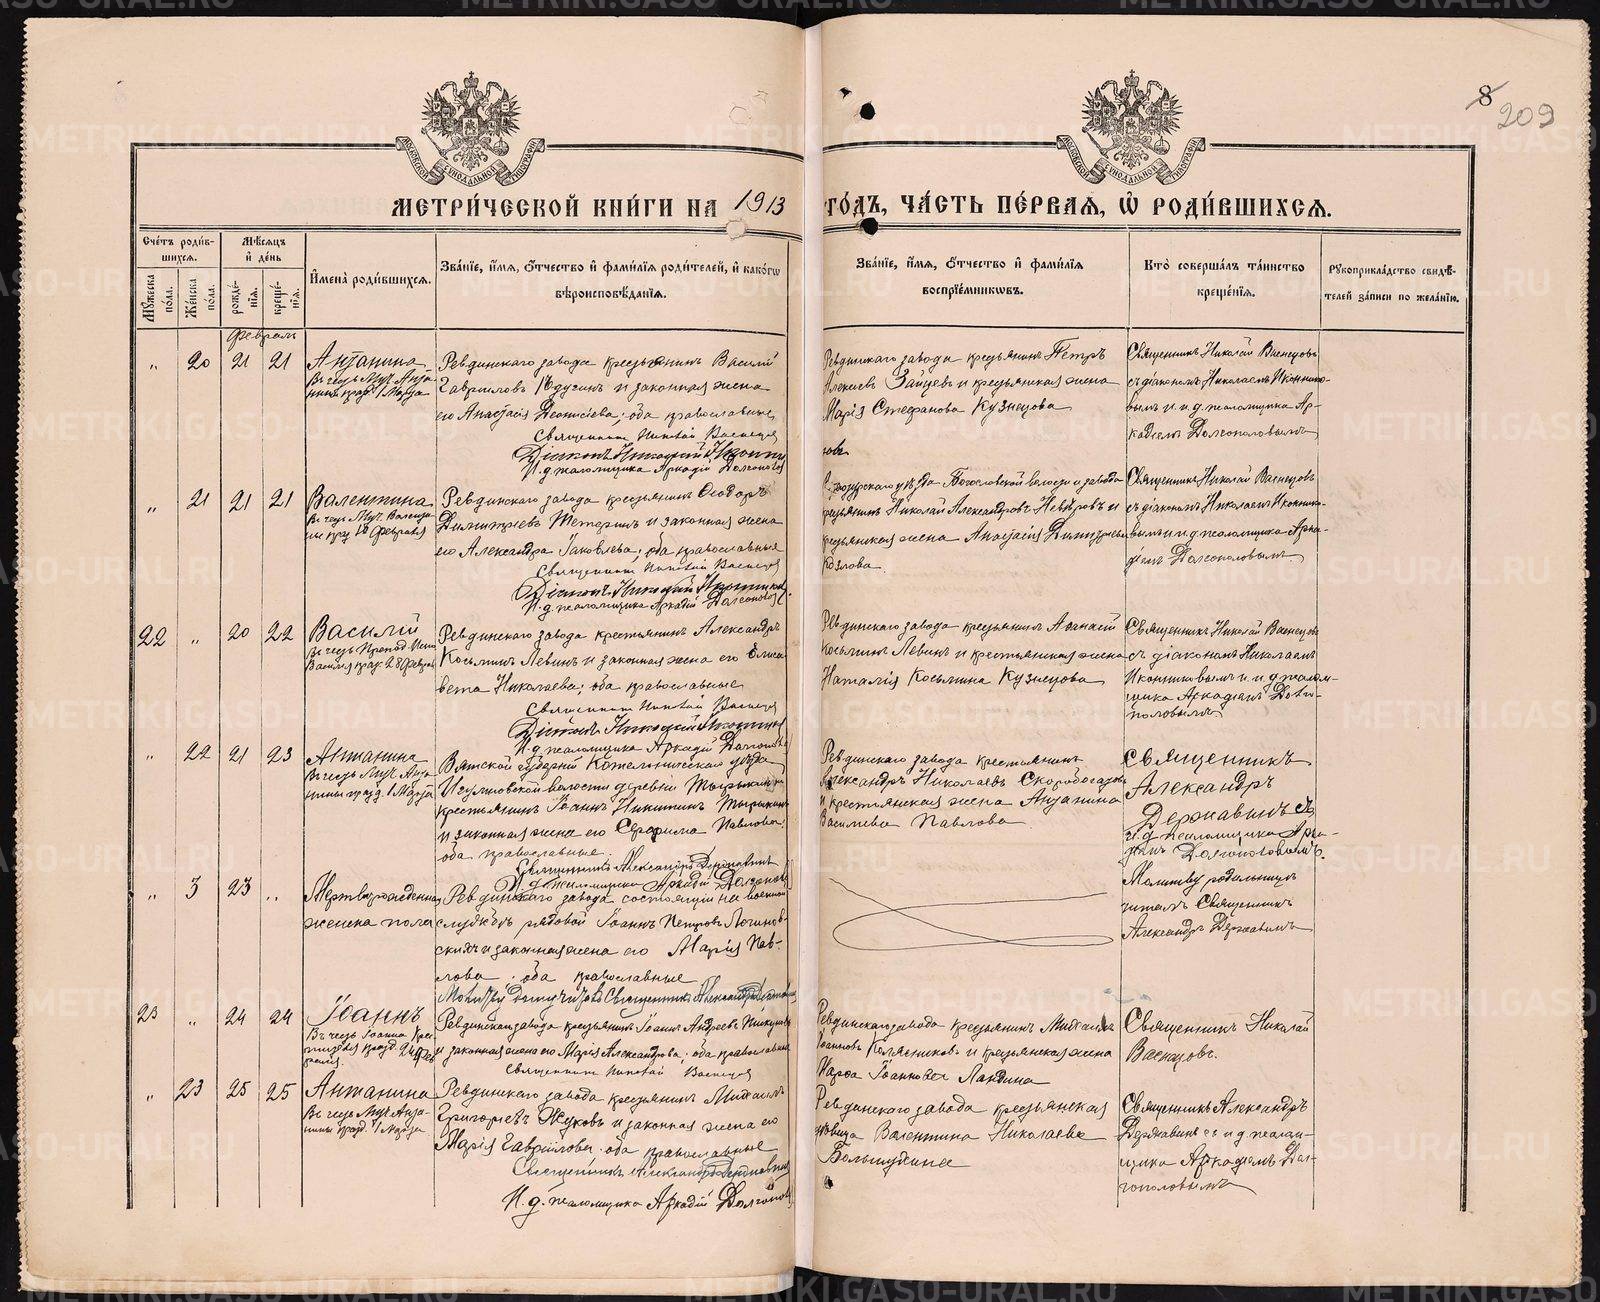 8
209
МОСКОВСКОЙ СѴНОДАЛЬНОЙ ТИПОГРАФІИ
МОСКОВСКОЙ СѴНОДАЛЬНОЙ ТИПОГРАФІИ
МЕТРИ́ЧЕСКОЙ КНИ́ГИ НА 1913 ГО́ДЪ, ЧА́СТЬ ПЕ́РВАЯ, Ѡ҆ РОДИ́ВШИХСЯ.
Сче́тъ роди́в-
шихся.
Мꙋ́жеска по́ла.
Же́нска по́ла.
Мѣ́сяцъ
и҆ де́нь
рожде́-
нїя.
креще́-
нїя.
И҆мена̀ роди́вшихся.
Зва́нїе, и҆́мя, ѻ҆́тчество и҆ фами́лїя роди́телей, и҆ како́гѡ
вѣроисповѣ́данїя.
Зва́нїе, и҆́мя, ѻ҆́тчество и҆ фами́лїя
воспрїе́мникѡвъ.
Кто̀ соверша́лъ та́инство
креще́нїя.
Рꙋкоприкла́дство свидѣ́-
телей за́писи по жела́нїю.
Февраль
„ 20 21 21
Антонина
Въ честь Муч. Анто-
нины празд. 1 Марта
Ревдинскаго завода крестьянинъ Василій
Гавриловъ и законная жена
его Анастасія Деонисіева, оба православные
Священникъ Николай Васнецов
Діаконъ Николай Иконни
И. д. псаломщика Аркадій Долгополов
Ревдинскаго завода крестьянинъ Петръ
Алексѣевъ Зайцевъ и крестьянская жена
Марія Стефанова Кузнецова
Священникъ Николай Васнецовъ
съ діакономъ Николаемъ Иконнико-
вымъ и и. д. псаломщика Ар-
кадіемъ Долгополовымъ
„ 21 21 21
Валентина
Въ честь Муч. Валенти-
ны празд. 10 Февраля
Ревдинскаго завода крестьянинъ Ѳеодоръ
Димитріевъ Тетеринъ и законная жена
его Александра Іаковлева, оба православные
Священникъ Николай Васнецов
Діаконъ Николай Иконников
И. д. псаломщика Аркадій Долгополов
уѣзда Богословской волости и завода
крестьянинъ Николай Александровъ Невѣровъ и
крестьянская жена Анастасія Димитріева
Козлова
Священникъ Николай Васнецовъ
съ діакономъ Николаемъ Иконнико-
вымъ и и. д. псаломщика Арка-
діемъ Долгополовымъ
22 „ 20 22
Василій
Въ честь Препод. Исп.
Василія празд. 28 Февраля
Ревдинскаго завода крестьянинъ Александръ
Косьминъ Левинъ и законная жена его Елиса
вета Николаева, оба православные
Священникъ Николай Васнецов
Діаконъ Николай Иконников
И. д. псаломщика Аркадій Долгополов
Ревдинскаго завода крестьянинъ Аѳанасій
Косьминъ Левинъ и крестьянская жена
Наталія Косьмина Кузнецова
Священникъ Николай Васнецовъ
съ діакономъ Николаемъ
Иконниковымъ и и. д. псалом-
щика Аркадіемъ Долго-
половымъ
„ 22 21 23
Антонина
Въ честь Муч. Анто-
нины празд. 1 Марта
Вятской губерніи Котельническаго уѣзда
волости деревни
крестьянинъ Іоаннъ Никитинъ
и законная жена его Серафима Павлова,
оба православные.
Священникъ Александръ Державинъ
И. д. псаломщика Аркадій Долгополов
Ревдинскаго завода крестьянинъ
Александръ Николаевъ Скоробогатовъ
и крестьянская жена Антонина
Васильева Павлова
Священникъ
Александръ
Державинъ съ
и. д. псаломщика Арка-
діемъ Долгополовымъ.
„ 3 23 „
Мертворожденная
женска пола
Ревдинскаго завода состоящій на военной
службѣ рядовой Іоаннъ Петровъ Логинов-
скихъ и законная жена его Марія Пав-
лова, оба православные
Молитву читалъ Священникъ Александръ Державинъ
Молитву родильницѣ
читалъ Священникъ
Александръ Державинъ
23 „ 24 24
Іоаннъ
Въ честь Іоанна Кре-
стителя празд. 24 Фев-
раля.
Ревдинскаго завода крестьянинъ Іоаннъ Андреевъ
и законная жена его Марія Александрова, оба православные
Священникъ Николай Васнецов
Ревдинскаго завода крестьянинъ Михаилъ
Іоанновъ Колясниковъ и крестьянская жена
Іоаннова Ландина
Священникъ Николай
Васнецовъ.
„ 23 25 25
Антонина
Въ честь Муч. Анто-
нины празд. 1 Марта
Ревдинскаго завода крестьянинъ Михаилъ
Григорьевъ Жуковъ и законная жена его
Марія Гавріилова, оба православные
Священникъ Александръ Державинъ
И. д. псаломщика Аркадій Долгополов
Ревдинскаго завода крестьянская
дѣвица Валентина Николаева
Большухина
Священникъ Александръ
Державинъ съ и. д. псалом-
щика Аркадіемъ Дол-
гополовымъ
METRIKI.GASO-URAL.RU